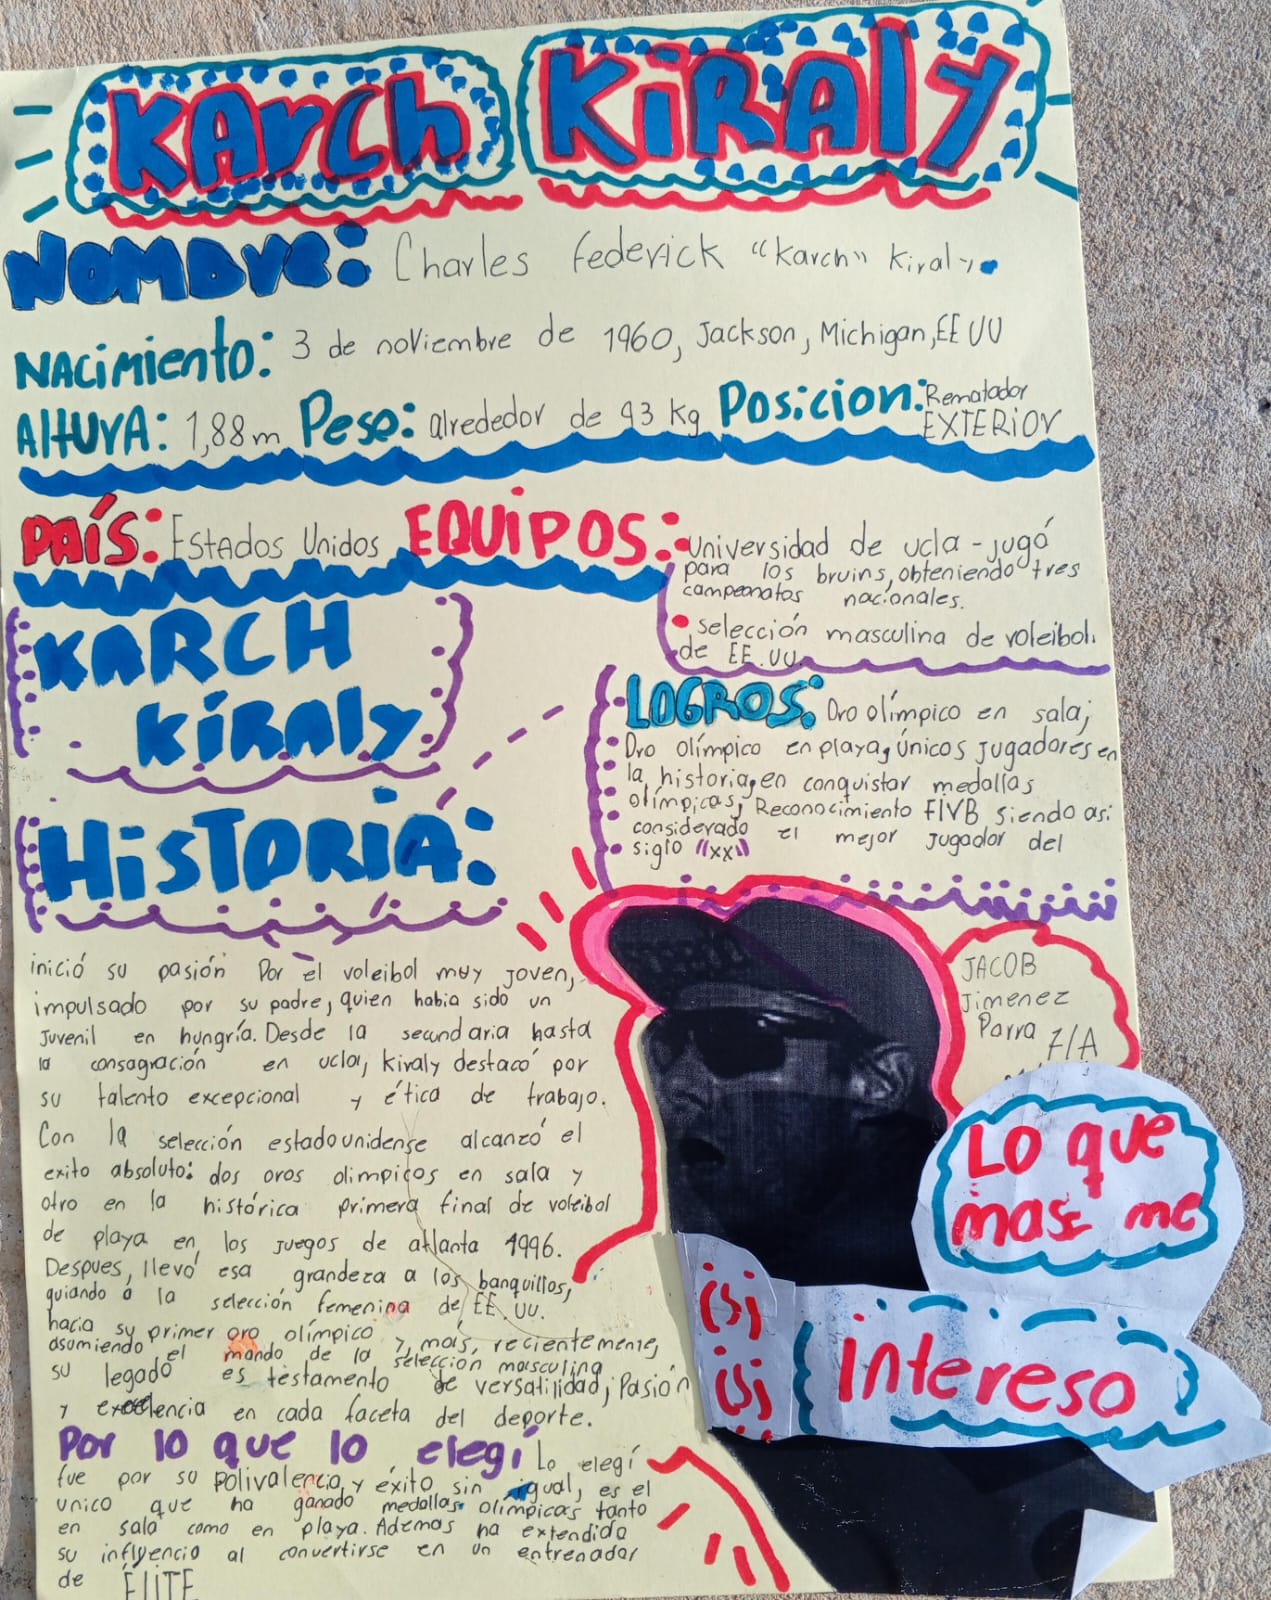 KArch KiRAly
NOMBre: Charles federick "Karch" Kiraly.
NAcimiento: 3 de noviembre de 1960, Jackson, Michigan, EE UU
AltUrA: 1,88m Peso: alrededor de 93 kg Posicion: Rematador
EXTERIOr
PAÍS: EstAdos Unidos EQUIPOS: •Universidad de ucla - jugó
para los bruins, obteniendo tres
campeonatos nacionales.
• selección masculina de voleibol.
de EE.UU.
KARCH
KiRAly
LOGROS: Oro olímpico en sala;
Oro olímpico en playa, únicos jugadores en
la historia, en conquistar medallas
olímpicas, Reconocimiento FIVB siendo asi
considerado el mejor jugador del
siglo "xx"
HiSTORIA:
inició su pasión Por el voleibol muy joven,
impulsado por su padre, quien habia sido un
juvenil en hungría. Desde la secundaria hasta
la consagración en ucla, kiraly destacó por
su talento excepcional y ética de trabajo.
Con la selección estadounidense alcanzó el
exito absoluto: dos oros olimpicos en sala y
otro en la histórica primera final de voleibol
de playa en los juegos de atlanta 1996.
Despues, llevó esa grandeza a los banquillos,
guiando a la selección femenina de EE.UU.
hacia su primer oro olímpico y, más, recientemente,
asumiendo el mando de la selección masculina
su legado es testamento de versatilidad, Pasión
y excelencia en cada faceta del deporte.
Por lo que lo elegí Lo elegí
fue por su polivalencia y éxito sin igual, es el
unico que ha ganado medallas olímpicas tanto
en sala como en playa. Ademas ha extendido
su influencia al convertirse en un entrenador
de ÉliTE
JACOB
Jimenez
Parra 7/A
Lo que
mas me
intereso